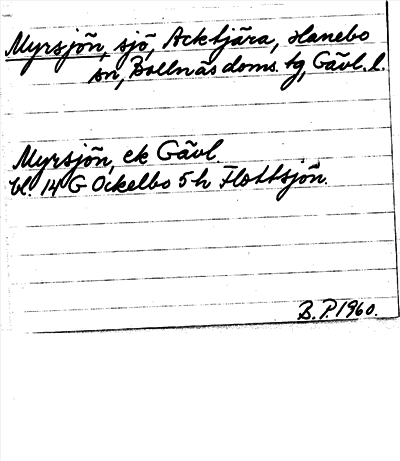 Myrsjön, sjö, Acktjära, Hanebo
sn, Bollnäs doms. tg, Gävl. l.
Myrsjön, ek Gävl
bl. 14 G Ockelbo 5 h Flottsjön.
B. P. 1960.